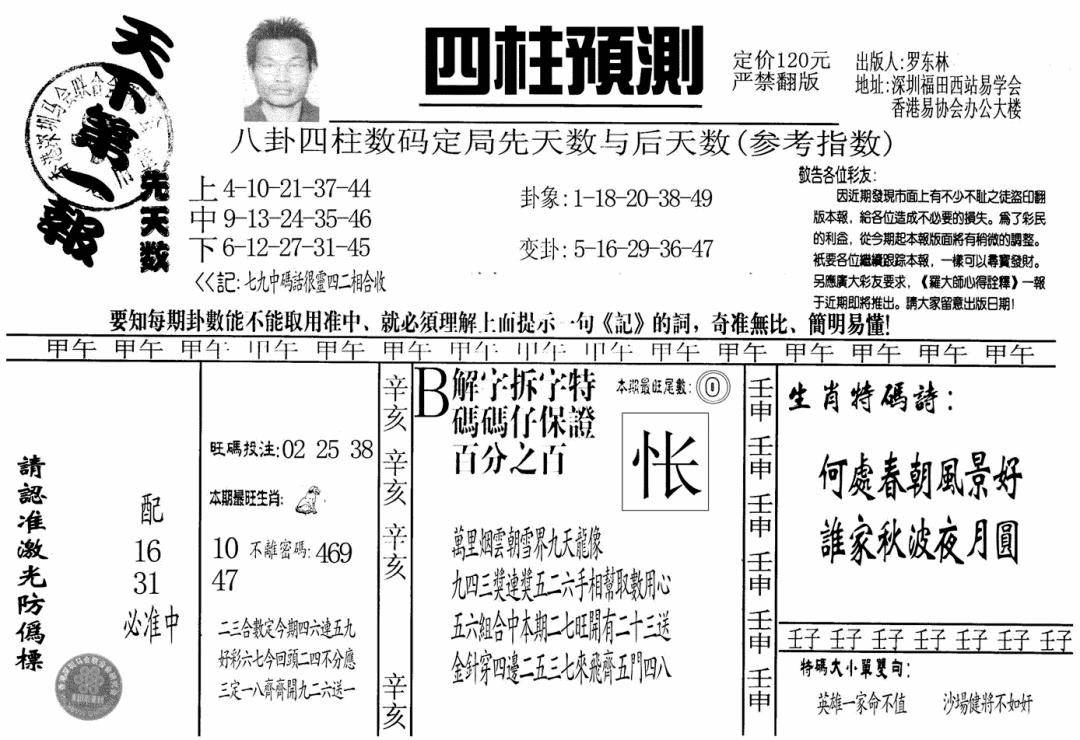 天下第一報
四柱預測
定价120元
严禁翻版
出版人:罗东林
地址:深圳福田西站易学会
香港易协会办公大楼
八卦四柱数码定局先天数与后天数(参考指数)
先天数
上4-10-21-37-44
中9-13-24-35-46
下6-12-27-31-45
卦象:1-18-20-38-49
变卦:5-16-29-36-47
<<記:七九中碼話很靈四二相合收
敬告各位彩友:
因近期發現市面上有不少不耻之徒盗印翻
版本報,給各位造成不必要的損失。爲了彩民
的利益,從今期起本報版面將有稍微的調整。
衹要各位繼續跟踪本報,一樣可以尋寶發財。
另應廣大彩友要求,《羅大師心得詮釋》一報
于近期即將推出。請大家留意出版日期!
要知每期卦數能不能取用准中、就必須理解上面提示一句《記》的詞,奇准無比、簡明易懂!
甲午 甲午 甲午 甲午 甲午 甲午 甲午 甲午 甲午 甲午 甲午 甲午 甲午 甲午 甲午
請認准激光防僞標
配
16
31
必准中
旺碼投注:02 25 38
本期最旺生肖:
10 不離密碼:469
47
二三合數定今期四六連五九
好彩六七今回頭二四不分應
三定一八齊齊開九二六送一
辛亥
辛亥
辛亥
辛亥
B解字拆字特
碼碼仔保證
百分之百
本期最旺尾數:0
怅
萬里烟雲朝雪界九天龍像
九四三獎連獎五二六手相幫取數用心
五六組合中本期二七旺開有二十三送
金針穿四邊二五三七來飛齊五門四八
壬申
壬申
壬申
壬申
壬申
壬申
生肖特碼詩:
何處春朝風景好
誰家秋波夜月圓
壬子 壬子 壬子 壬子 壬子 壬子 壬子
特碼大小單雙句:
英雄一家命不值 沙場健將不如奸